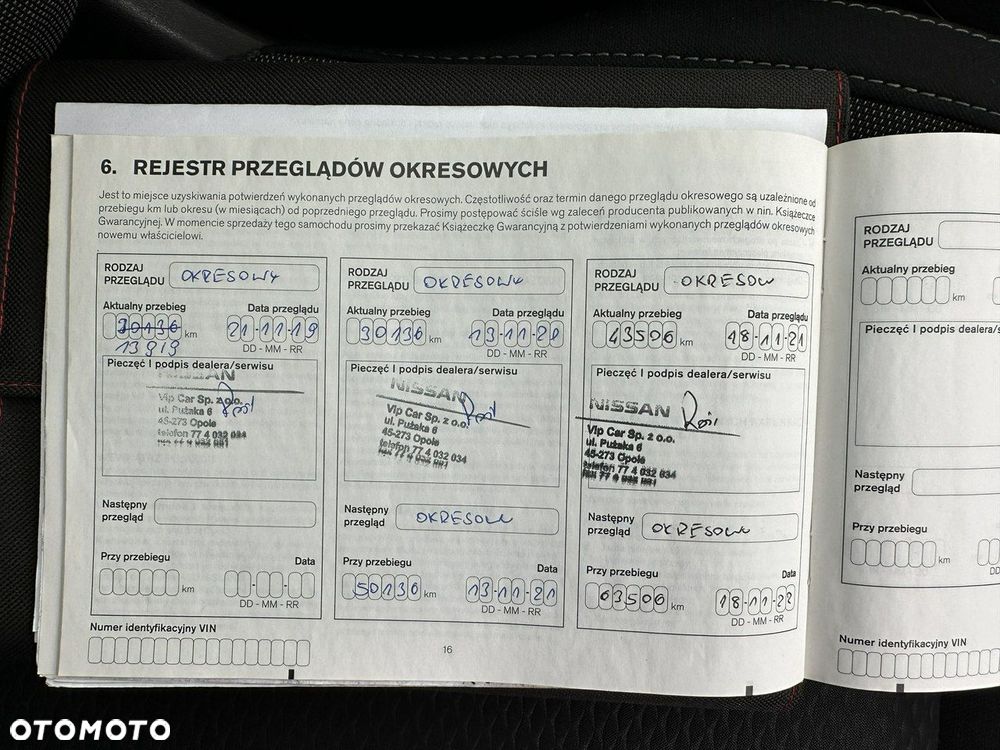 6. REJESTR PRZEGLĄDÓW OKRESOWYCH
Jest to miejsce uzyskiwania potwierdzeń wykonanych przeglądów okresowych. Częstotliwość oraz termin danego przeglądu okresowego są uzależnione od
przebiegu km lub okresu (w miesiącach) od poprzedniego przeglądu. Prosimy postępować ściśle wg zaleceń producenta publikowanych w nin. Książeczce
Gwarancyjnej. W momencie sprzedaży tego samochodu prosimy przekazać Książeczkę Gwarancyjną z potwierdzeniami wykonanych przeglądów okresowych
nowemu właścicielowi.
RODZAJ
PRZEGLĄDU OKRESOWY
Aktualny przebieg Data przeglądu
30136 km 21-11-19
13919 DD - MM - RR
Pieczęć I podpis dealera/serwisu
NISSAN
Vip Car Sp. z o.o.
ul. Pużaka 6
45-273 Opole
telefon 77 4 032 034
Następny
przegląd
Przy przebiegu Data
km
DD - MM - RR
Numer identyfikacyjny VIN
RODZAJ
PRZEGLĄDU OKRESOWY
Aktualny przebieg Data przeglądu
30136 km 13-11-20
DD - MM - RR
Pieczęć I podpis dealera/serwisu
NISSAN
Vip Car Sp. z o.o.
ul. Pużaka 6
45-273 Opole
telefon 77 4 032 034
Następny
przegląd OKRESOWY
Przy przebiegu Data
50136 km 13-11-21
DD - MM - RR
16
RODZAJ
PRZEGLĄDU OKRESOW
Aktualny przebieg Data przeglądu
43506 km 18-11-21
DD - MM - RR
Pieczęć I podpis dealera/serwisu
NISSAN
Vip Car Sp. z o.o.
ul. Pużaka 6
45-273 Opole
telefon 77 4 032 034
Następny
przegląd OKRESOWY
Przy przebiegu Data
63506 km 18-11-22
DD - MM - RR
RODZAJ
PRZEGLĄDU
Aktualny przebieg
km
Pieczęć I podpis dealera/
Następny
przegląd
Przy przebiegu
km
DD
Numer identyfikacyjny VIN
OTOMOTO